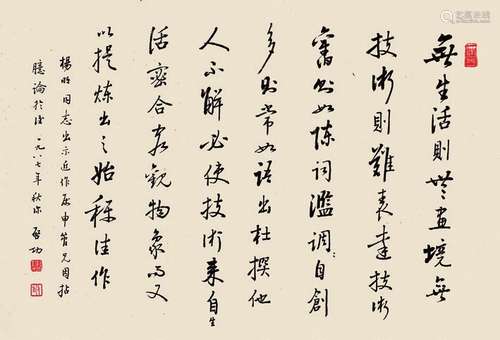 無生活則無畫境無
技術則難表達技術
舊則如陳詞濫調自創
多則常如語出杜撰他
人不解必使技術来自生
活密合客觀物象而又
以提煉出之始稱佳作
楊明同志出示近作屬申管見因拈
臆論於後一九八七年秋深启功